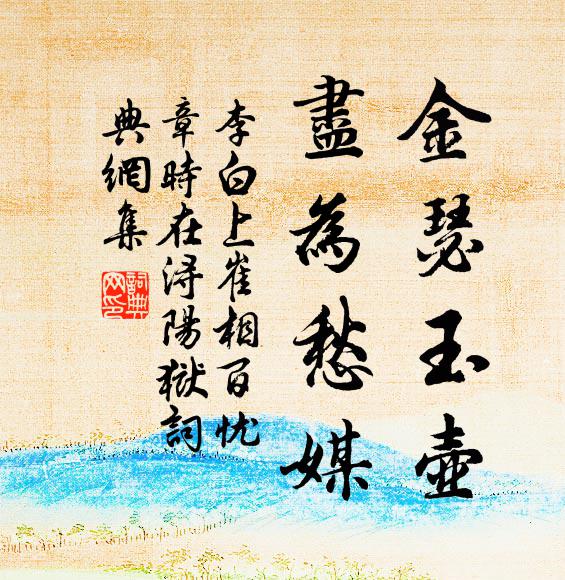 金瑟玉壺
盡為愁媒
李白上崔相百忧
章時在浔陽獄詞
典網集
詞典网印